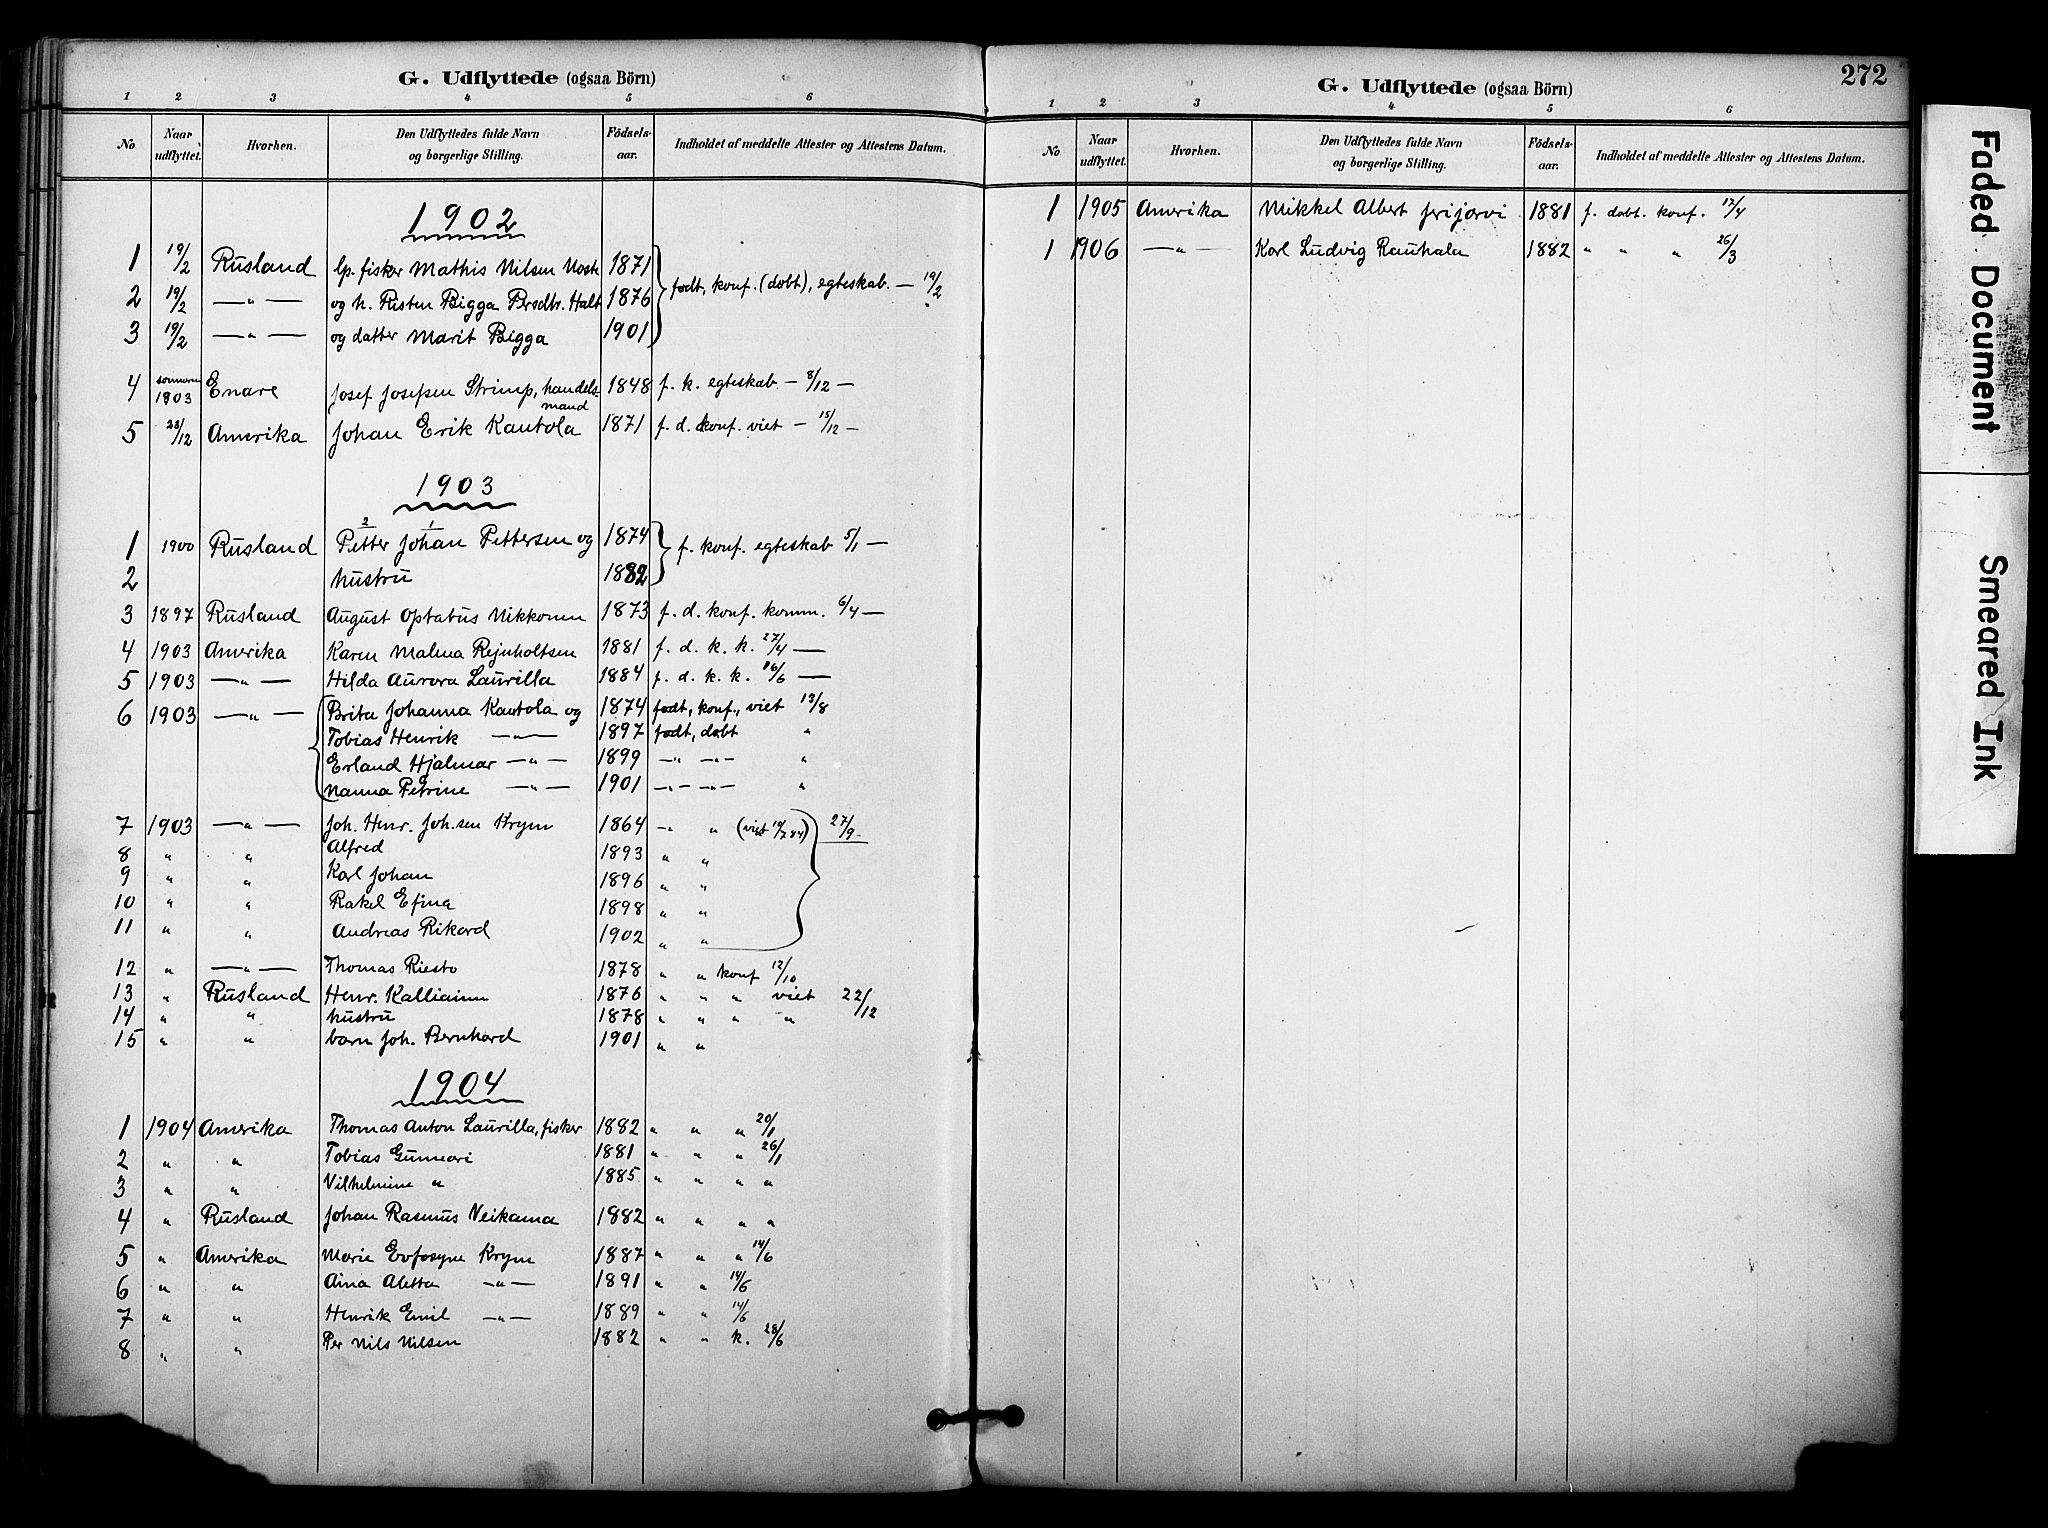 G. Udflyttede (ogsaa Börn)
1 2 3 4 5 6
No Naar udflyttet. Hvorhen. Den Udflyttedes fulde Navn og borgerlige Stilling. Födsels-aar. Indholdet af meddelte Attester og Attestens Datum.
1902
1 19/2 Rusland lp. fisker Mathis Nilsen 1871
2 19/2 —"— og h. Risten Bigga Persdtr. Halt 1876 født, konf. (døbt), egteskab. — 19/2
3 19/2 —"— og datter Marit Bigga 1901
4 sommeren 1903 Enare Josef Josefsen Strimp, handels- 1848 f. k. egteskab — 8/12 —
mand
5 23/12 Amerika Johan Erik Kantola 1871 f. d. konf. viet — 15/12 —
1903
2 1
1 1900 Rusland Petter Johan Pettersen og 1874 f. konf. egteskab 5/1 —
2 hustru 1882
3 1897 Rusland August Optatus Nikkonen 1873 f. d. konf. komm. 6/4 —
4 1903 Amerika Karen Malma Rejnholtsen 1881 f. d. k. k. 27/4 —
5 1903 —"— Hilda Aurora Laurilla 1884 f. d. k. k. 16/6 —
6 1903 —"— Brita Johanna Kantola og 1874 født, konf., viet 19/8
Tobias Henrik —"— 1897 født, døbt "
Erland Hjalmar —"— 1899 —"— —"— "
Nanna Petrine —"— 1901 —"— —"— "
7 1903 —"— Joh. Henr. Joh.sen Krym 1864 —" " (viet 84) 27/9
8 " " Alfred 1893 " "
9 " " Karl Johan 1896 " "
10 " " Rakel Efina 1898 " "
11 " " Andreas Rikard 1902 " "
12 " —"— Thomas Riesto 1878 " " konf 12/10
13 " Rusland Henr. Kalliainen 1876 " " " viet 22/12
14 " " hustru 1878 " " " "
15 " " barn Joh. Bernhard 1901 " "
1904
1 1904 Amerika Thomas Anton Laurilla, fisker 1882 " " " 20/1
2 " " Tobias Gunnari 1881 " " " 26/1
3 " " Vilhelmine " 1885 " " " "
4 " Rusland Johan Rasmus Neikama 1882 " " " "
5 " Amerika Marie Evfosyne Krym 1887 " " " 14/6
6 " " Aina Aletta —"— 1891 " " 14/6
7 " " Henrik Emil —"— 1889 " " 14/6
8 " " Per Nils Nilsen 1882 " " k. 28/6
G. Udflyttede (ogsaa Börn)
272
1 2 3 4 5 6
No Naar udflyttet. Hvorhen. Den Udflyttedes fulde Navn og borgerlige Stilling. Födsels-aar. Indholdet af meddelte Attester og Attestens Datum.
1 1905 Amerika Mikkel Albert Jrijarvi 1881 f. døbt. konf. 12/4
1 1906 —"— Karl Ludvig Rauhala 1882 " " " 26/3
Faded Document
Smeared Ink